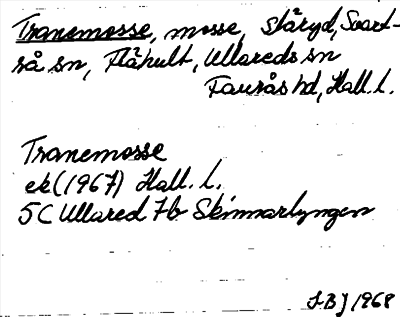 Tranemosse, mosse,Ståryd, Svart-
rå sn, Flåhult, Ullareds sn
Faurås hd, Hall. l.
Tranemosse
ek (1967) Hall. l.
5C Ullared 7b Skinnarlyngen
LBJ 1968